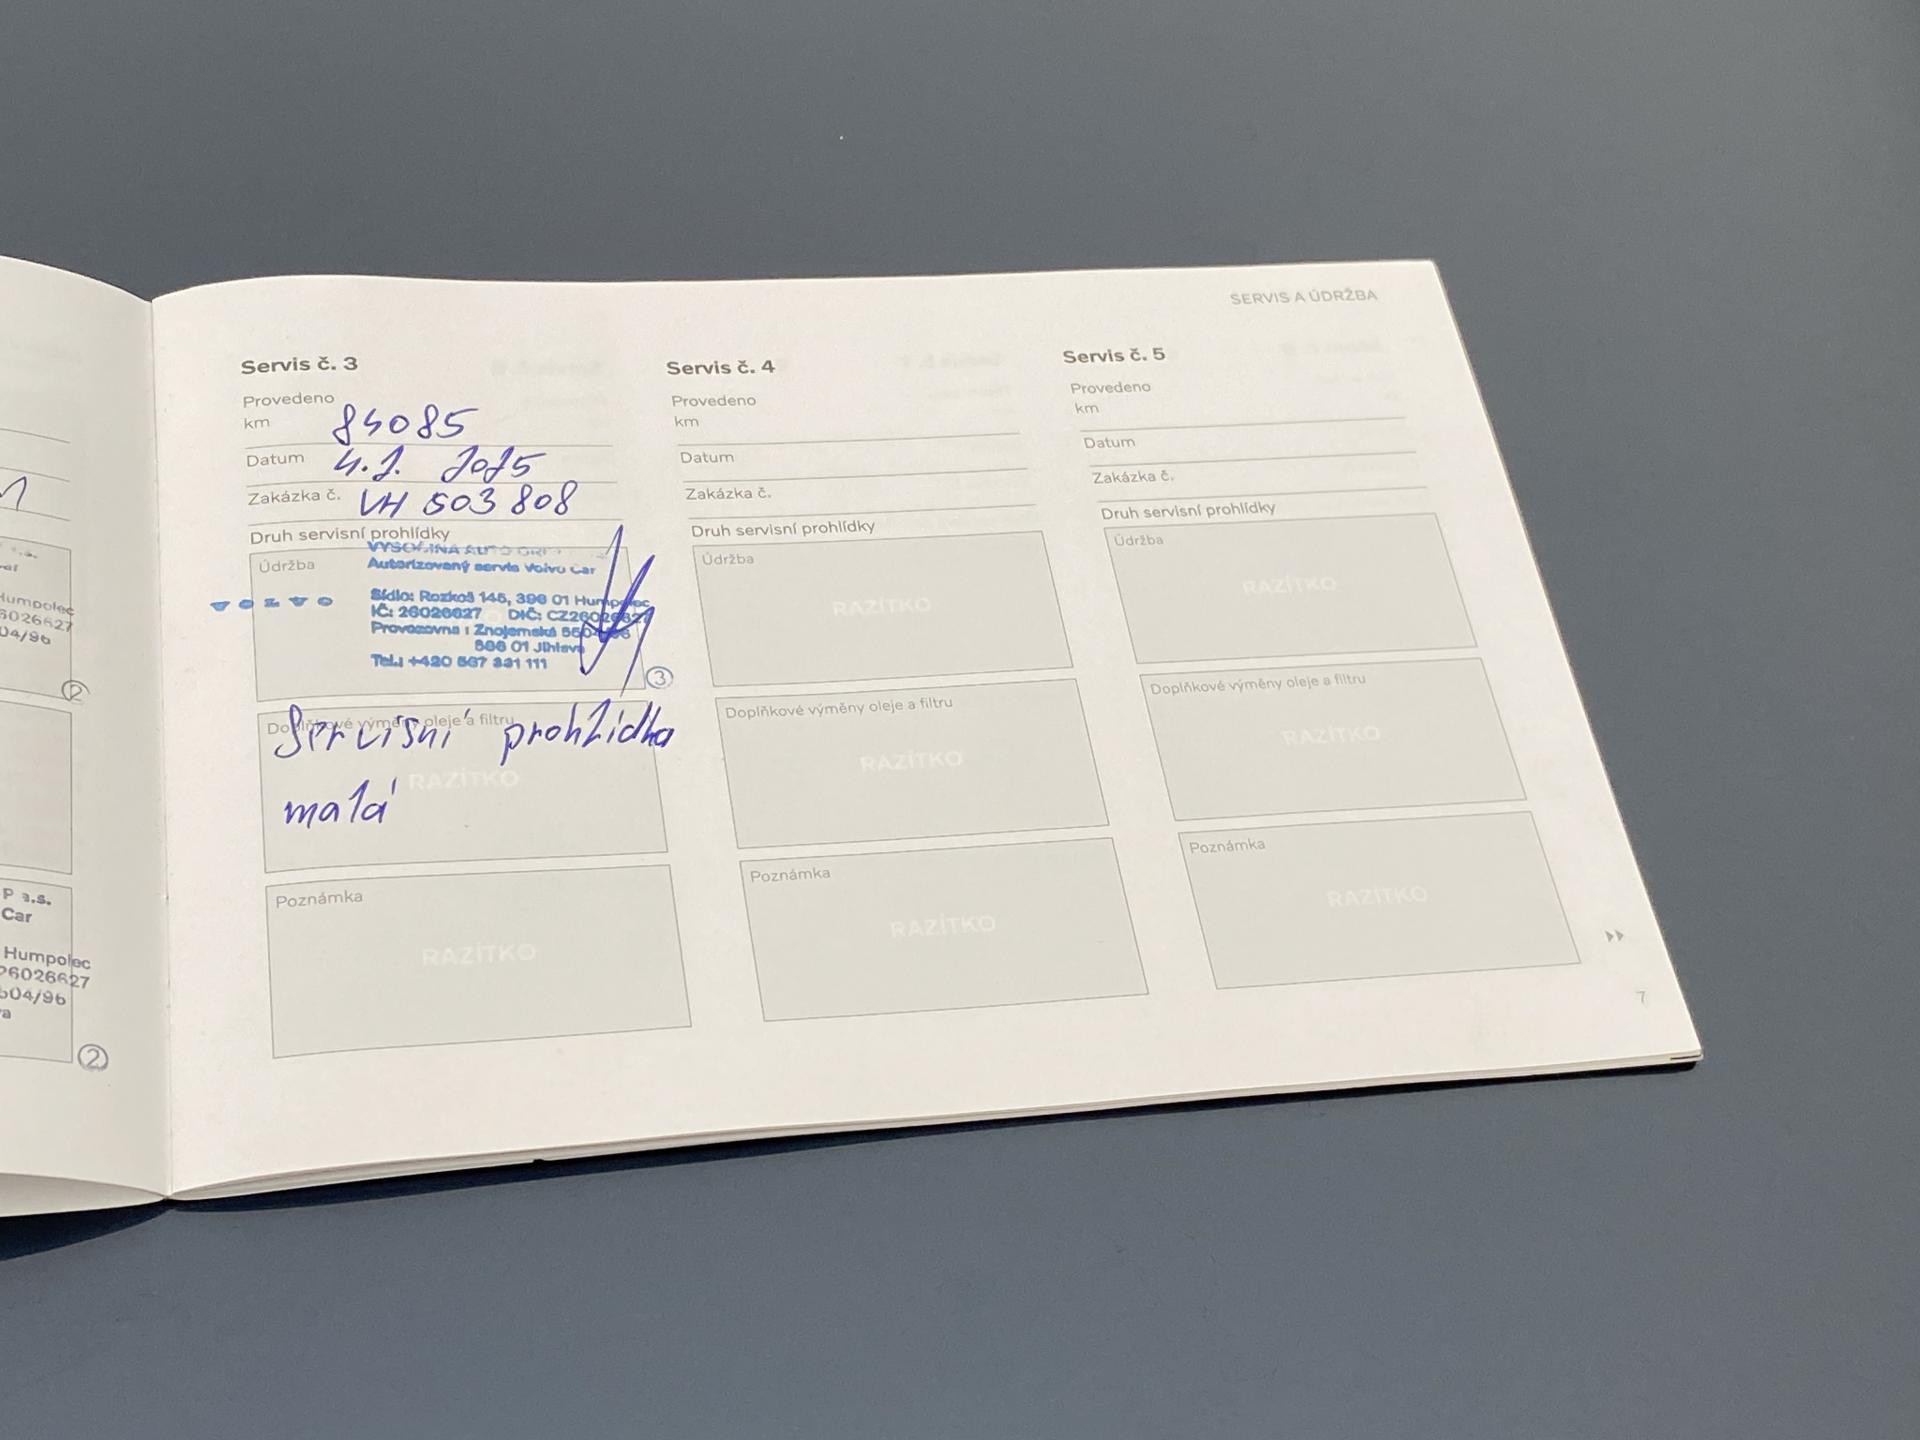 P a.s.
Car
Humpolec
26026627
504/96
②
SERVIS A ÚDRŽBA
Servis č. 3
Provedeno
km 84085
Datum 4.2. 2025
Zakázka č. VH 503 808
Druh servisní prohlídky
Údržba
VYSOČINA AUTO
Autorizovaný servis Volvo Car
VOLVO
Sídlo: Rozkoš 145, 396 01 Humpolec
IČ: 26026627 DIČ: CZ26026627
Provozovna : Znojemská 5504/96
586 01 Jihlava
Tel.: +420 567 331 111
③
Doplňkové výměny oleje a filtru
Servisní prohlídka
RAZÍTKO
malá
Poznámka
RAZÍTKO
Servis č. 4
Provedeno
km
Datum
Zakázka č.
Druh servisní prohlídky
Údržba
RAZÍTKO
Doplňkové výměny oleje a filtru
RAZÍTKO
Poznámka
RAZÍTKO
Servis č. 5
Provedeno
km
Datum
Zakázka č.
Druh servisní prohlídky
Údržba
RAZÍTKO
Doplňkové výměny oleje a filtru
RAZÍTKO
Poznámka
RAZÍTKO
7